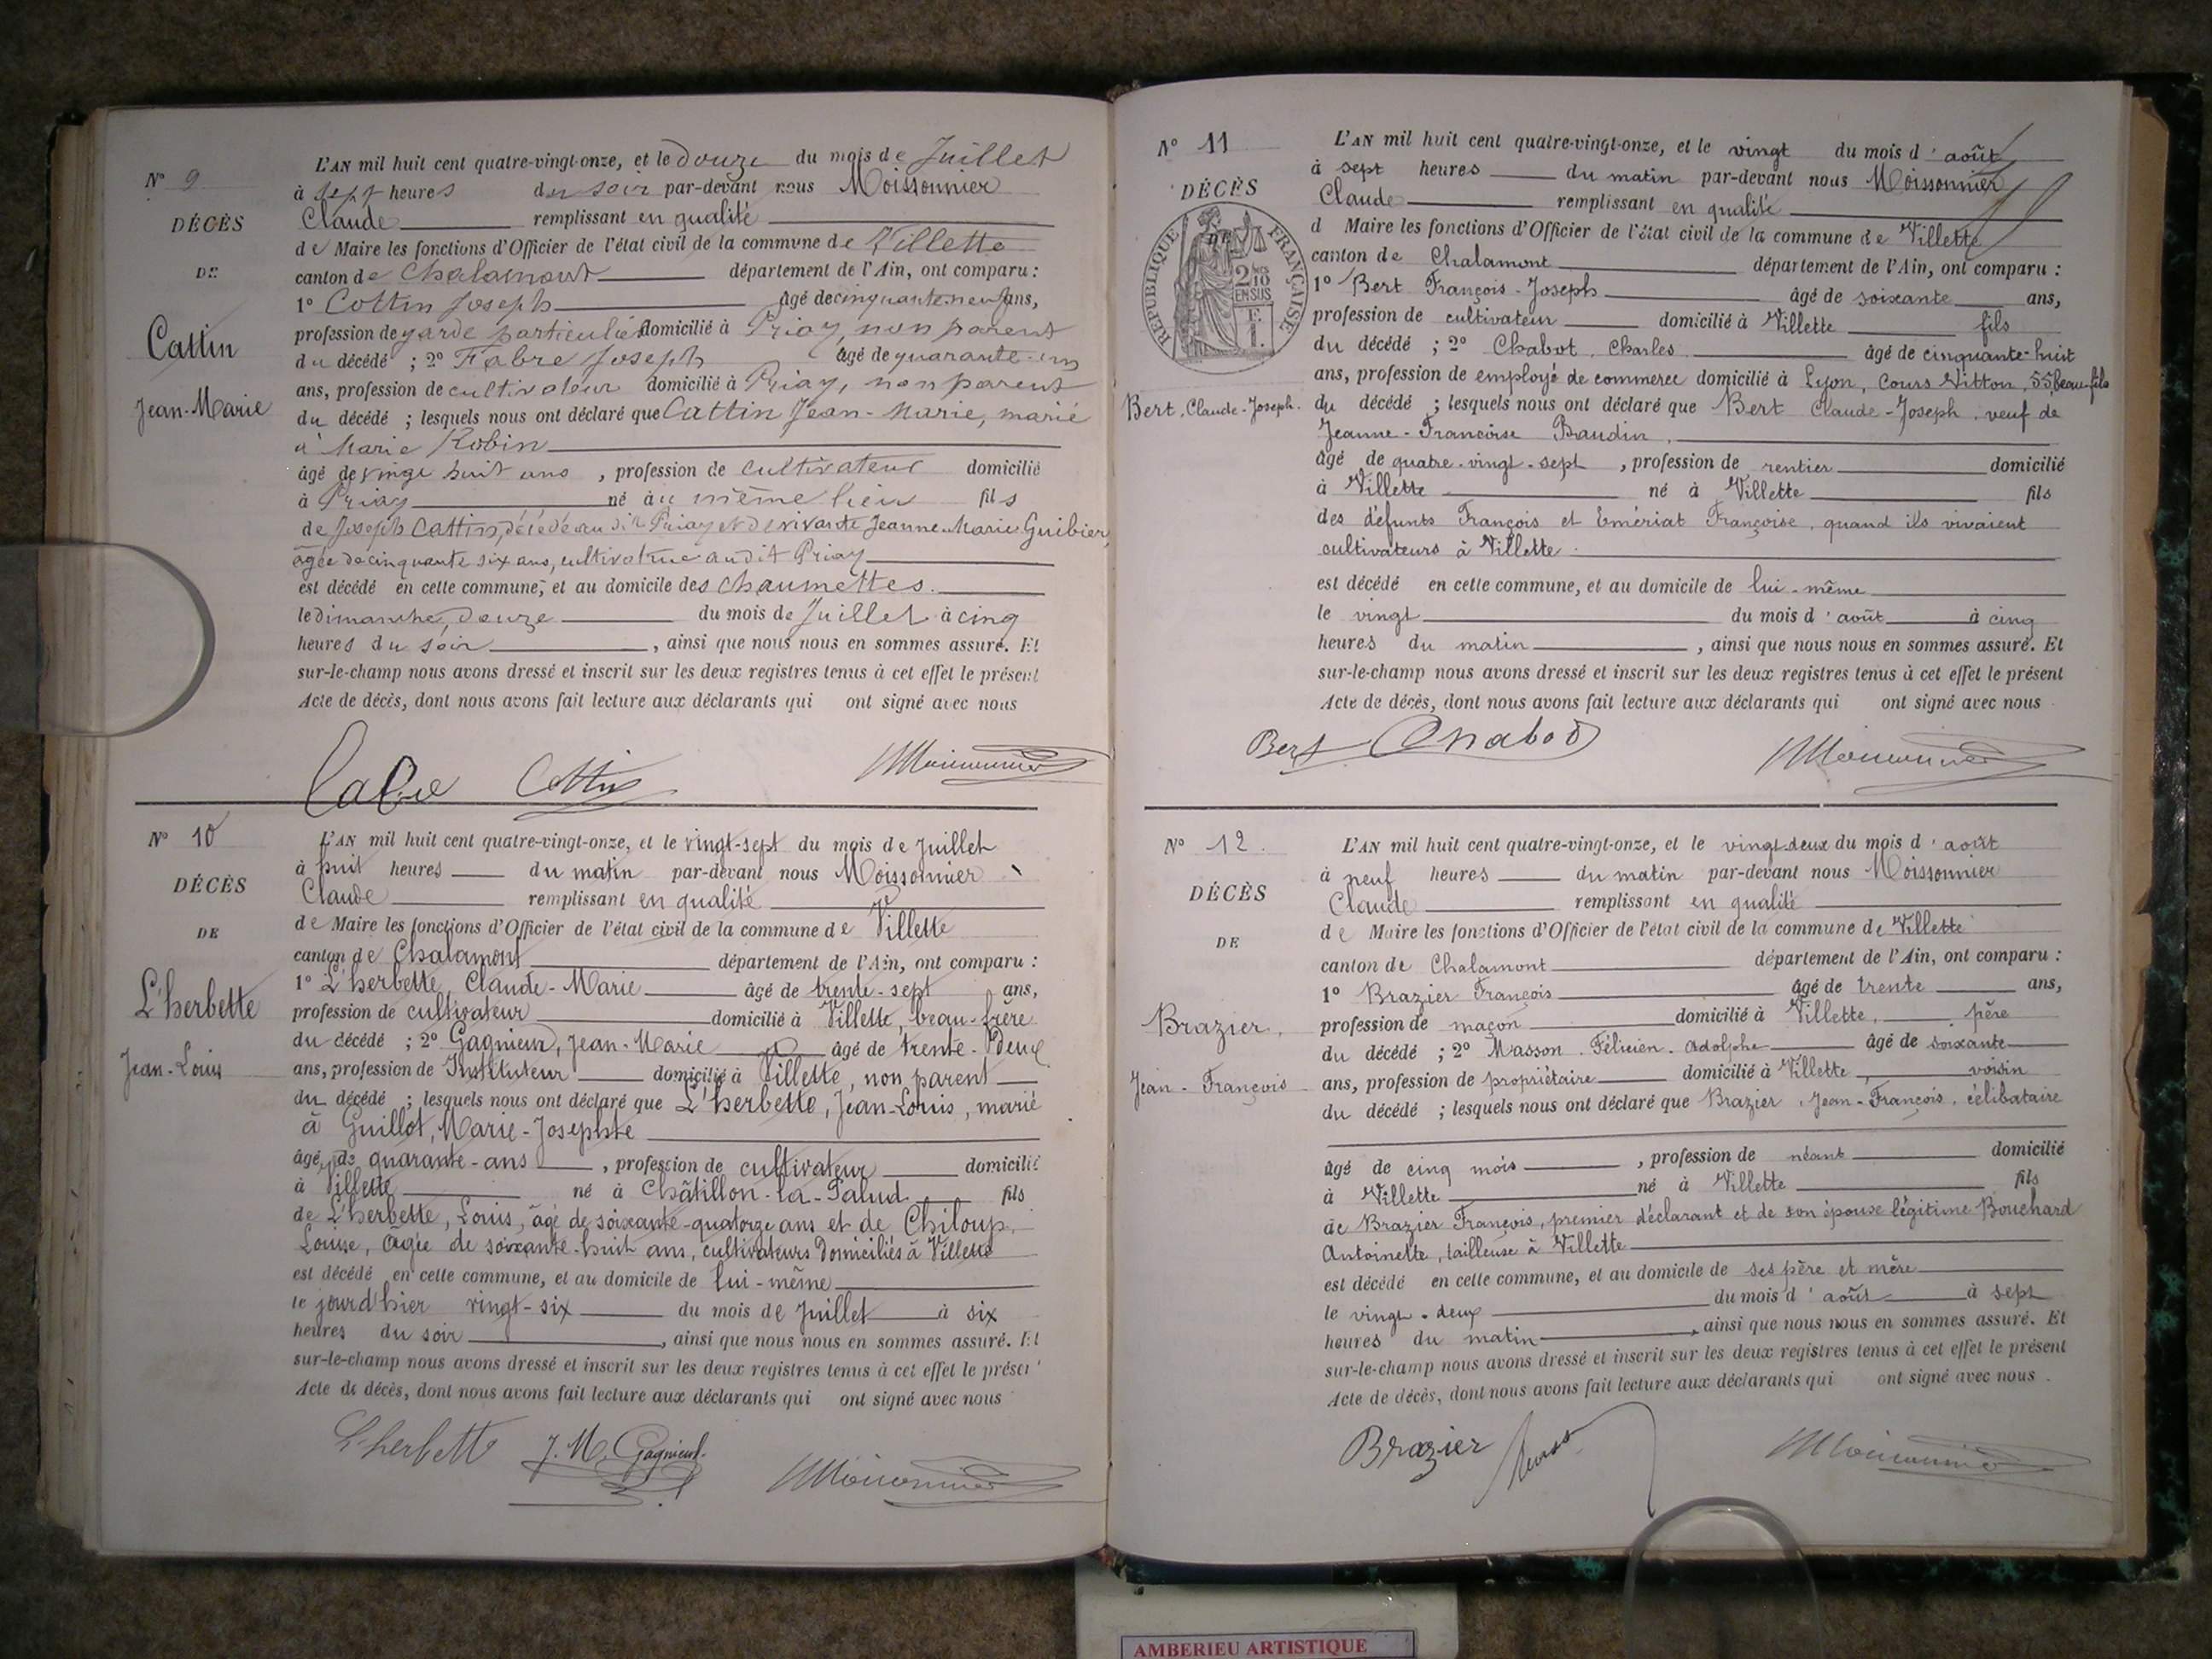 N° 9
DÉCÈS
DE
Cattin
Jean-Marie
L'AN mil huit cent quatre-vingt-onze, et le douze du mois de Juillet
à sept heures du soir par-devant nous Moissonnier
Claude remplissant en qualité
de Maire les fonctions d'Officier de l'état civil de la commune de Villette
canton de Chalamont département de l'Ain, ont comparu :
1° Cottin Joseph âgé de cinquante-neuf ans,
profession de garde particulier domicilié à Priay, non parent
du décédé ; 2° Fabre Joseph âgé de quarante-un
ans, profession de cultivateur domicilié à Priay, non parent
du décédé ; lesquels nous ont déclaré que Cattin Jean-Marie, marié
à Marie Robin
âgé de vingt huit ans , profession de cultivateur domicilié
à Priay né au même lieu fils
de Joseph Cattin, décédé au dit Priay et de vivante Jeanne Marie Guibier,
âgée de cinquante six ans, cultivatrice audit Priay
est décédé en cette commune, et au domicile des Chaumettes.
le dimanche, douze du mois de Juillet à cinq
heures du soir , ainsi que nous nous en sommes assuré. Et
sur-le-champ nous avons dressé et inscrit sur les deux registres tenus à cet effet le présent
Acte de décès, dont nous avons fait lecture aux déclarants qui ont signé avec nous
Cottin Moissonnier
N° 10
DÉCÈS
DE
L'herbette
Jean-Louis
L'AN mil huit cent quatre-vingt-onze, et le vingt-sept du mois de Juillet
à huit heures du matin par-devant nous Moissonnier
Claude remplissant en qualité
de Maire les fonctions d'Officier de l'état civil de la commune de Villette
canton de Chalamont département de l'Ain, ont comparu :
1° L'herbette, Claude-Marie âgé de trente-sept ans,
profession de cultivateur domicilié à Villette, beau-frère
du décédé ; 2° Gagnieux, Jean-Marie âgé de trente-deux
ans, profession de Instituteur domicilié à Villette, non parent
du décédé ; lesquels nous ont déclaré que L'herbette, Jean-Louis, marié
à Guillot, Marie-Josephte
âgé de quarante-ans , profession de cultivateur domicilié
à Villette né à Châtillon-la-Palud fils
de L'herbette, Louis, âgé de soixante-quatorze ans et de Chiloup,
Louise, âgée de soixante-huit ans, cultivateurs domiciliés à Villette
est décédé en cette commune, et au domicile de lui-même
le jourd'hier vingt-six du mois de Juillet à six
heures du soir , ainsi que nous nous en sommes assuré. Et
sur-le-champ nous avons dressé et inscrit sur les deux registres tenus à cet effet le présent
Acte de décès, dont nous avons fait lecture aux déclarants qui ont signé avec nous
L'herbette J. M. Gagnieux Moissonnier
N° 11
DÉCÈS
DE
RÉPUBLIQUE FRANÇAISE
2/10 EN SUS
Bert, Claude-Joseph.
L'AN mil huit cent quatre-vingt-onze, et le vingt du mois d'août
à sept heures du matin par-devant nous Moissonnier
Claude remplissant en qualité
d Maire les fonctions d'Officier de l'état civil de la commune de Villette
canton de Chalamont département de l'Ain, ont comparu :
1° Bert François-Joseph âgé de soixante ans,
profession de cultivateur domicilié à Villette fils
du décédé ; 2° Chabot, Charles âgé de cinquante-huit
ans, profession de employé de commerce domicilié à Lyon, Cours Vitton, 55, beau-fils
du décédé ; lesquels nous ont déclaré que Bert Claude-Joseph, veuf de
Jeanne-Françoise Baudin,
âgé de quatre-vingt-sept , profession de rentier domicilié
à Villette né à Villette fils
des défunts François et Emériat Françoise, quand ils vivaient
cultivateurs à Villette
est décédé en cette commune, et au domicile de lui-même
le vingt du mois d'août à cinq
heures du matin , ainsi que nous nous en sommes assuré. Et
sur-le-champ nous avons dressé et inscrit sur les deux registres tenus à cet effet le présent
Acte de décès, dont nous avons fait lecture aux déclarants qui ont signé avec nous
Bert Chabot Moissonnier
N° 12.
DÉCÈS
DE
Brazier,
Jean-François
L'AN mil huit cent quatre-vingt-onze, et le vingt-deux du mois d'août
à neuf heures du matin par-devant nous Moissonnier
Claude remplissant en qualité
de Maire les fonctions d'Officier de l'état civil de la commune de Villette
canton de Chalamont département de l'Ain, ont comparu :
1° Brazier François âgé de trente ans,
profession de maçon domicilié à Villette, père
du décédé ; 2° Masson Félicien Adolphe âgé de soixante
ans, profession de propriétaire domicilié à Villette, voisin
du décédé ; lesquels nous ont déclaré que Brazier, Jean-François, célibataire
âgé de cinq mois , profession de néant domicilié
à Villette né à Villette fils
de Brazier François, premier déclarant et de son épouse légitime Bouchard
Antoinette, tailleuse à Villette
est décédé en cette commune, et au domicile de ses père et mère
le vingt-deux du mois d'août à sept
heures du matin , ainsi que nous nous en sommes assuré. Et
sur-le-champ nous avons dressé et inscrit sur les deux registres tenus à cet effet le présent
Acte de décès, dont nous avons fait lecture aux déclarants qui ont signé avec nous.
Brazier Moissonnier
AMBERIEU ARTISTIQUE